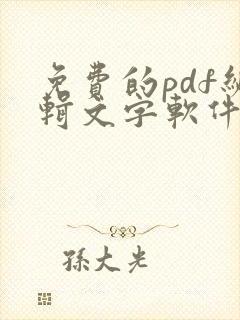 免費的pdf編
輯文字軟件
孫大光